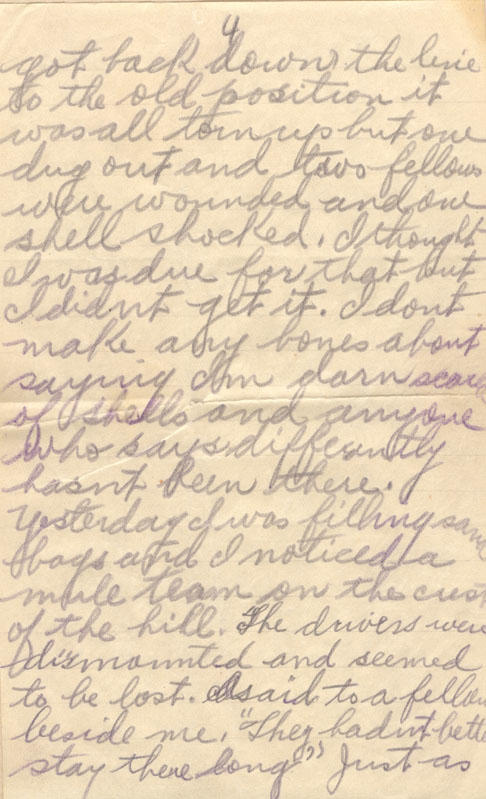 4
got back down the line
to the old position it
was all torn up but one
dug out and two fellows
were wounded and one
shell shocked. I thought
I was due for that but
I didnt get it. I dont
make any bones about
saying Im darn scared
of shells and anyone
who says differently
hasnt been there.
Yesterday I was filling sand
bags and I noticed a
mule team on the crest
of the hill. The drivers were
dismounted and seemed
to be lost. I said to a fellow
beside me, "They hadnt better
stay there long" Just as